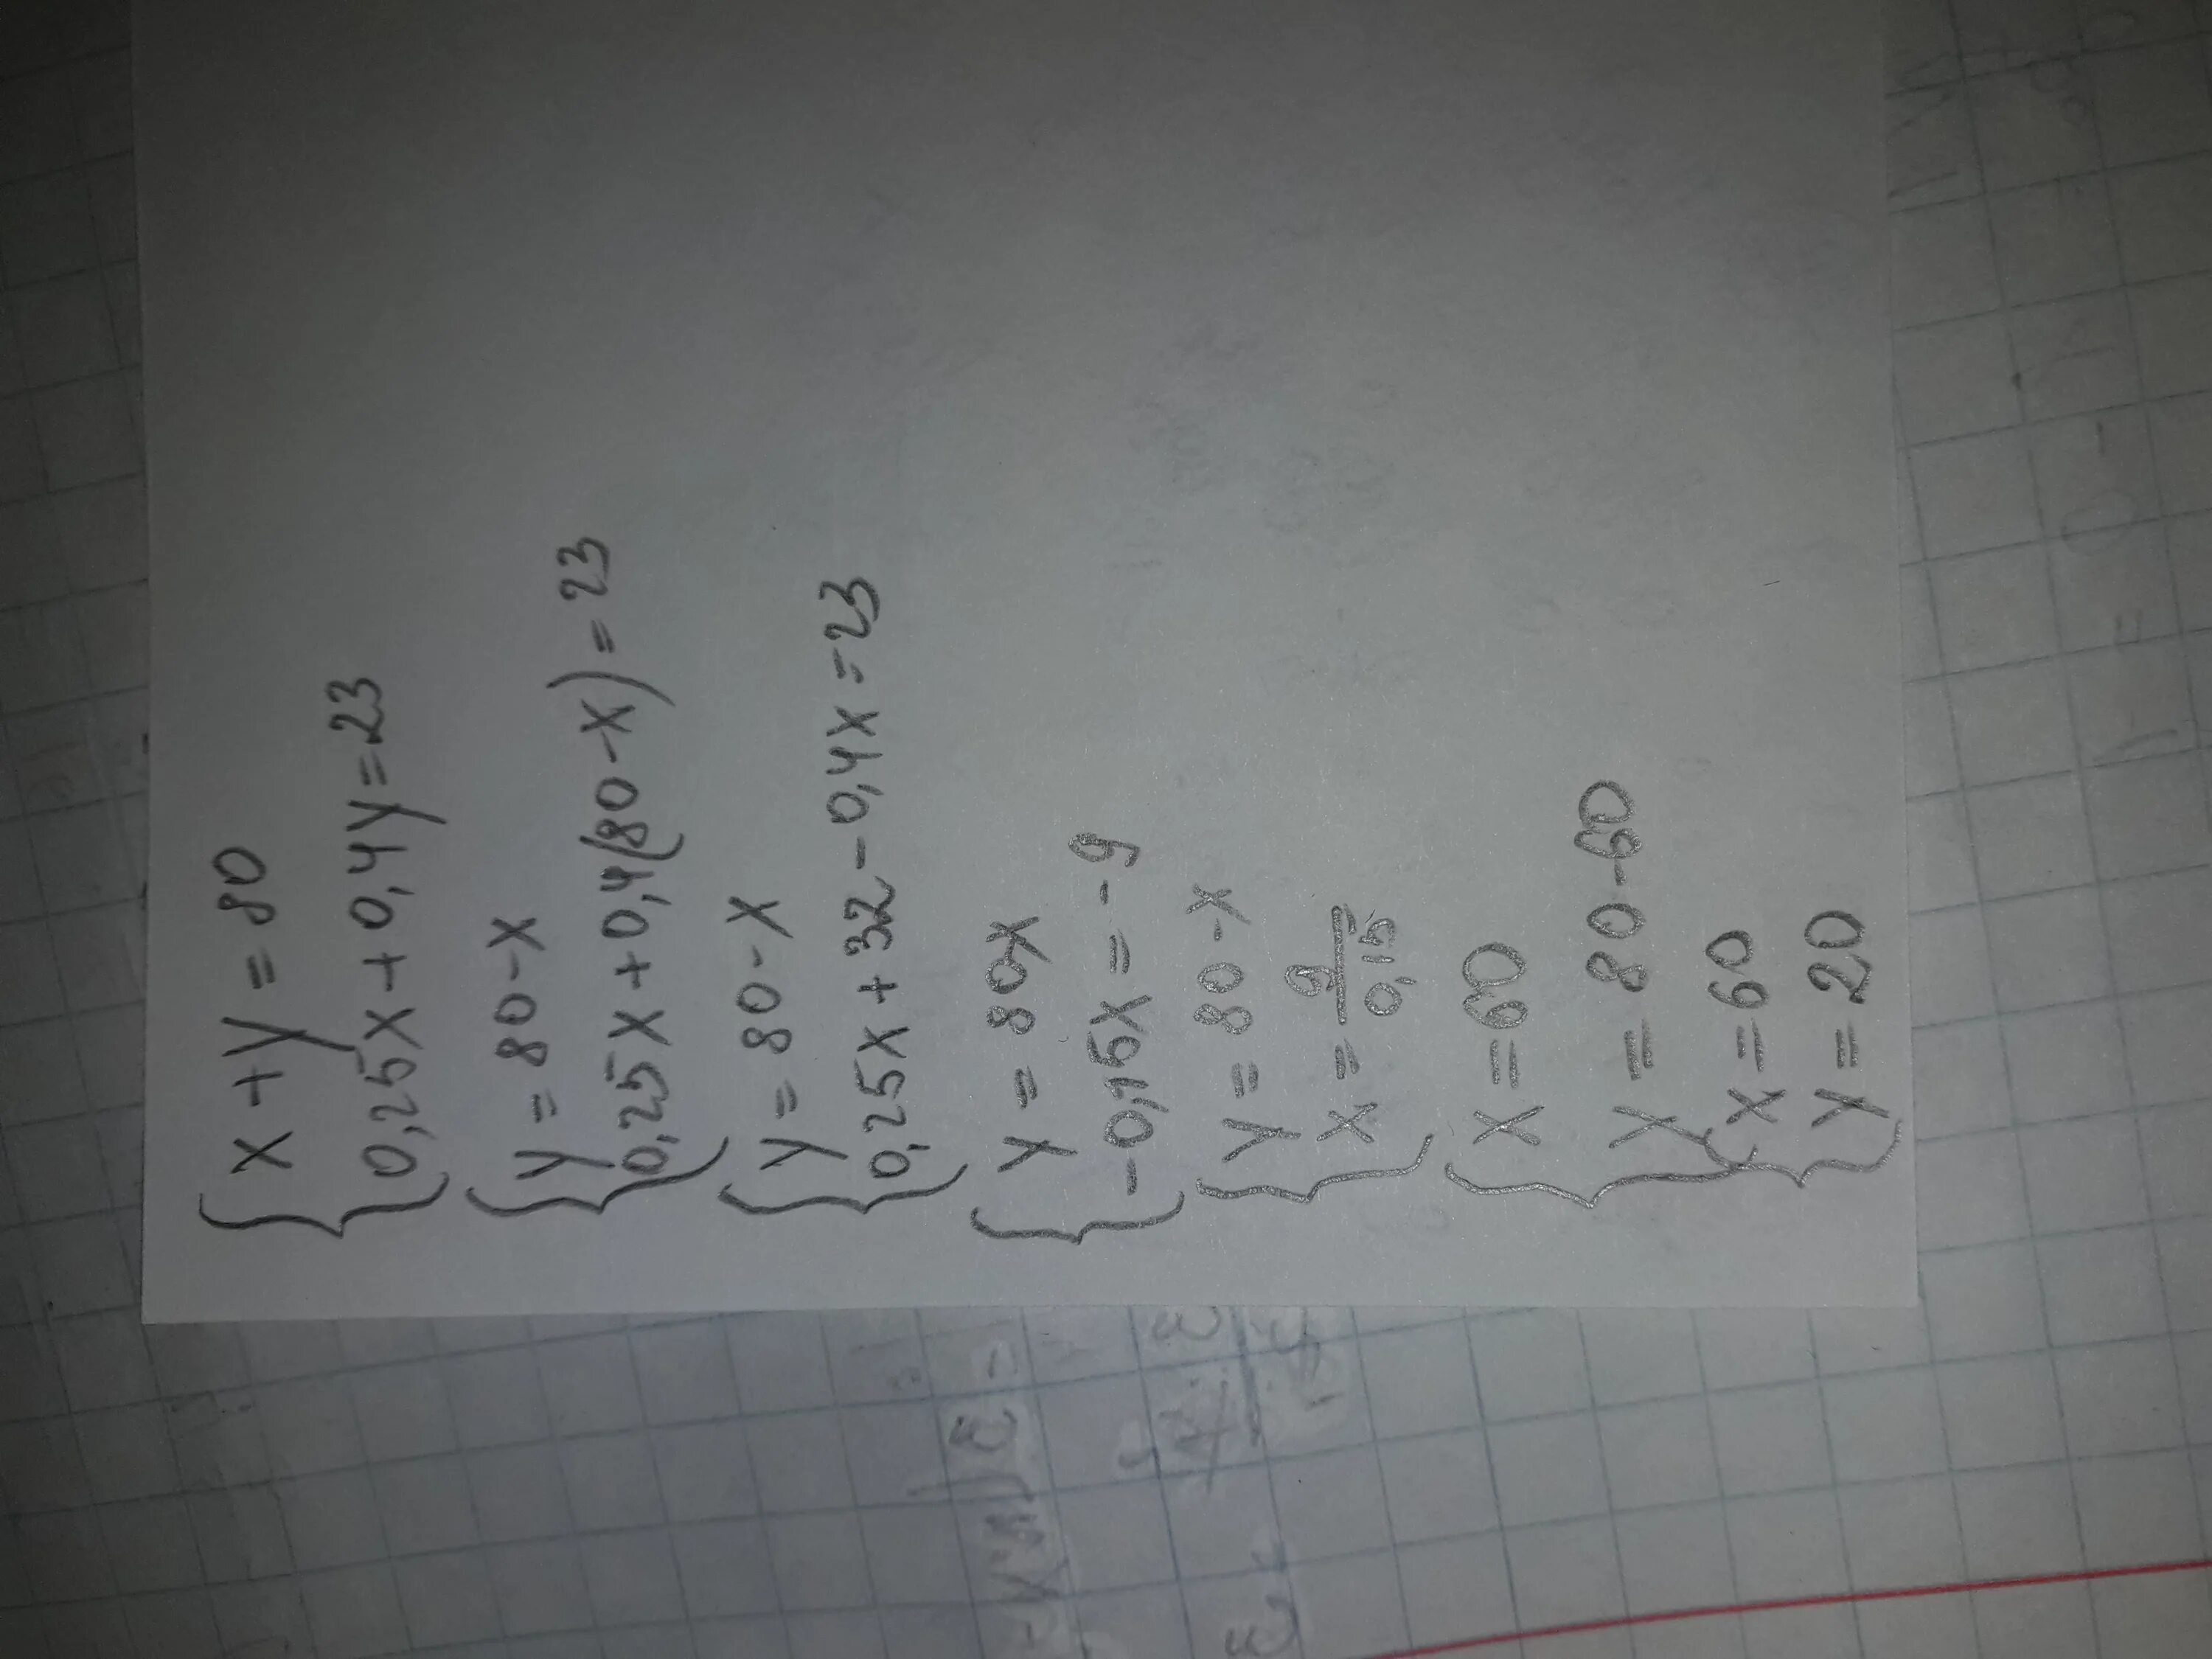 x + y = 80
0,25x + 0,4y = 23
y = 80 - x
0,25x + 0,4(80 - x) = 23
y = 80 - x
0,25x + 32 - 0,4x = 23
y = 80-x
-0,15x = -9
y = 80 - x
x = 9/0,15
x = 60
y = 80 - 60
x = 60
y = 20